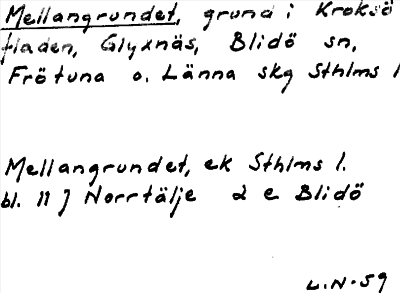 Mellangrundet, grund i Kroksö
fladen, Glyxnäs, Blidö sn,
Frötuna o. Länna skg Sthlms l
Mellangrundet, ek Sthlms l.
bl. 11 J Norrtälje 2 e Blidö
L.N-59